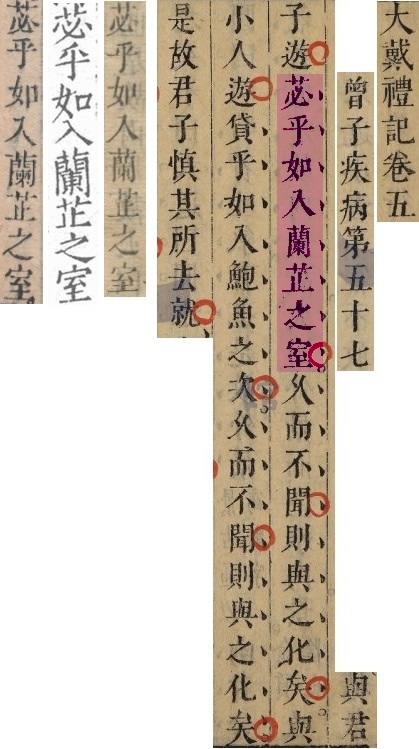 大戴禮記卷五
曾子疾病第五十七
與君
子遊苾乎如入蘭芷之室。久而不聞則與之化矣。與
小人遊貸乎如入鮑魚之次。久而不聞則與之化矣
是故君子慎其所去就、
苾乎如入蘭芷之室
苾乎如入蘭芷之室
苾乎如入蘭芷之室